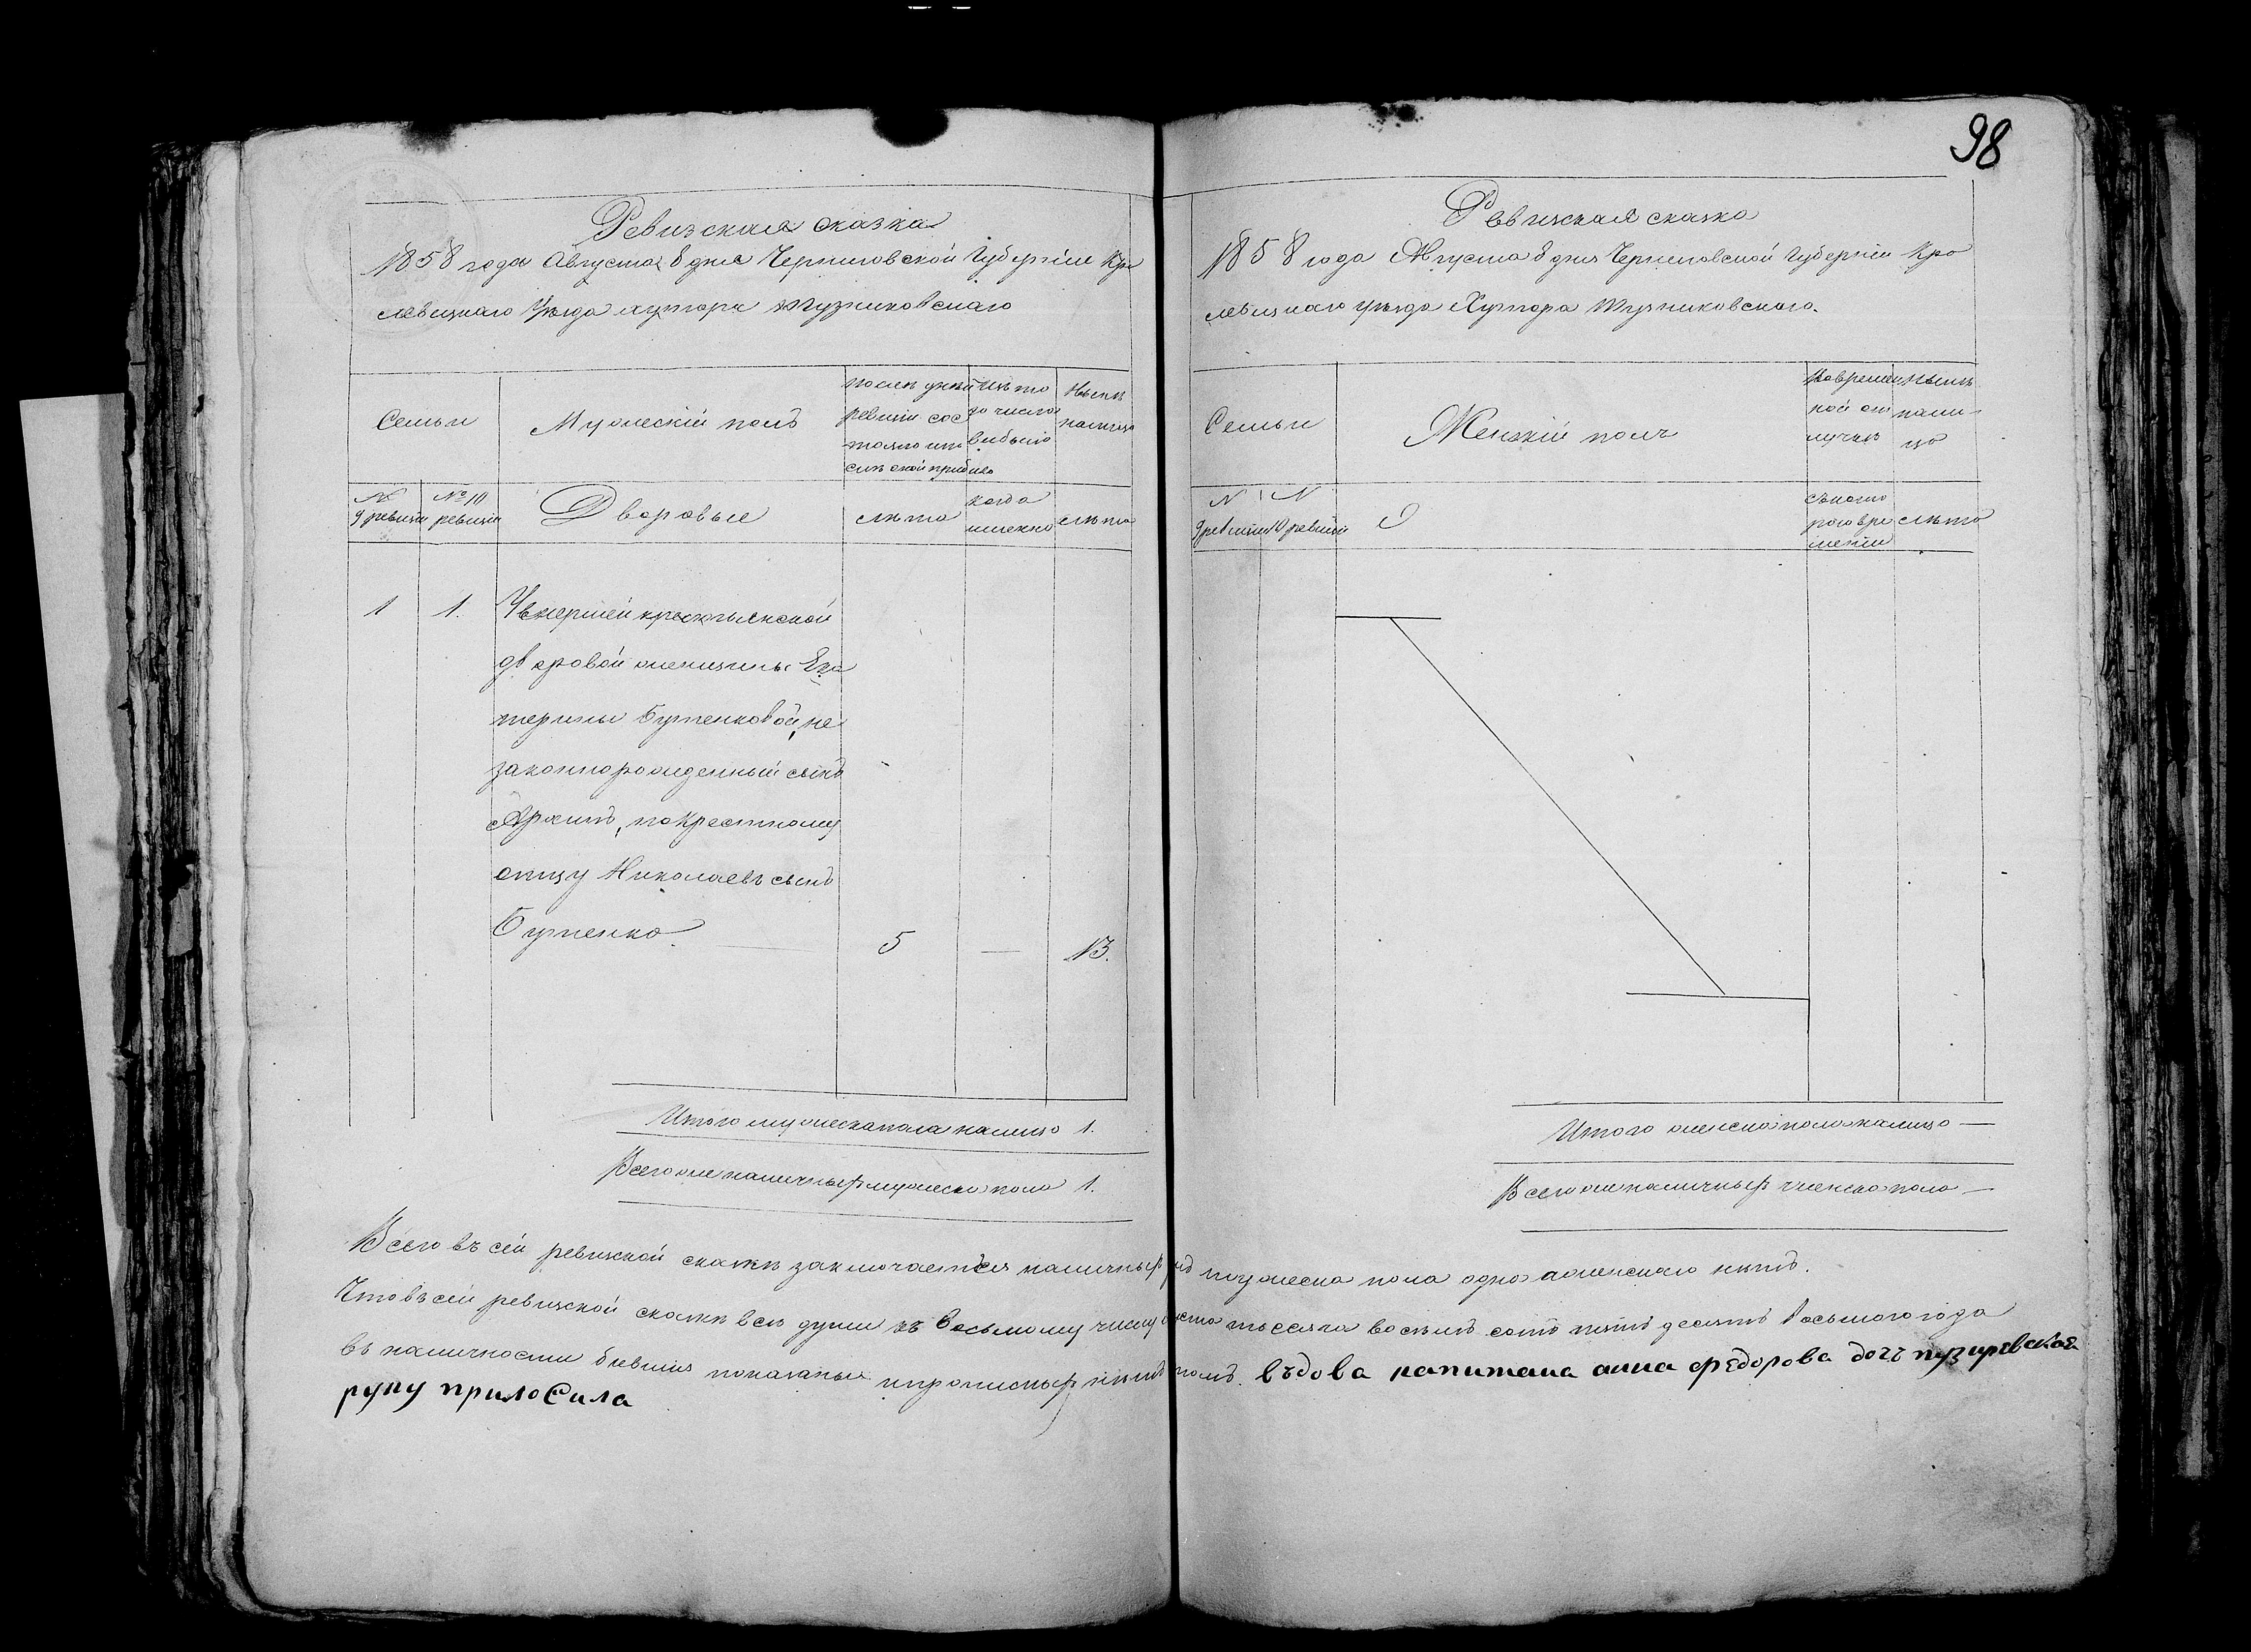 98
Ревизская сказка
1858 года Августа 8 дня Черниговской Губерніи Кро
левецкаго Уезда хутора Музниковскаго
Семьи
Мужескій полъ
№ 9 ревизіи
№ 10 ревизіи
Дворовые
лѣта
когда именно
лѣта
1 1. Умершей крестьянской
дворовой женщины Ека
терины Бутенковой, не
законнорожденный сынъ
Архипъ, по крестному
отцу Николаевъ сынъ
Бутенко 5 — 13.
Итого мужеска пола налицо 1.
Всего же наличныхъ мужеска пола 1.
Ревизская сказка
1858 года Августа 8 дня Черниговской Губерніи Кро
левецкаго уезда Хутора Музниковскаго.
Семьи
Женскій полъ
Во времен
ной от
лучке
Ныне
нали-
цо
N 9 ревизіи
N 10 ревизіи
Съ кото
раго вре
мени
лѣта
Итого женска пола налицо —
Всего же наличныхъ женска пола —
Всего въ сей ревизской сказке заключается наличныхъ мужеска пола одна а женскаго нетъ.
Что въ сей ревизской сказке все души къ восьмому числу тысяча восемь сотъ пятьдесятъ восьмого года
въ наличности бывшия показаны и прописныхъ нетъ въдова капитана анна федорова дочъ пузиревская
руку приложила